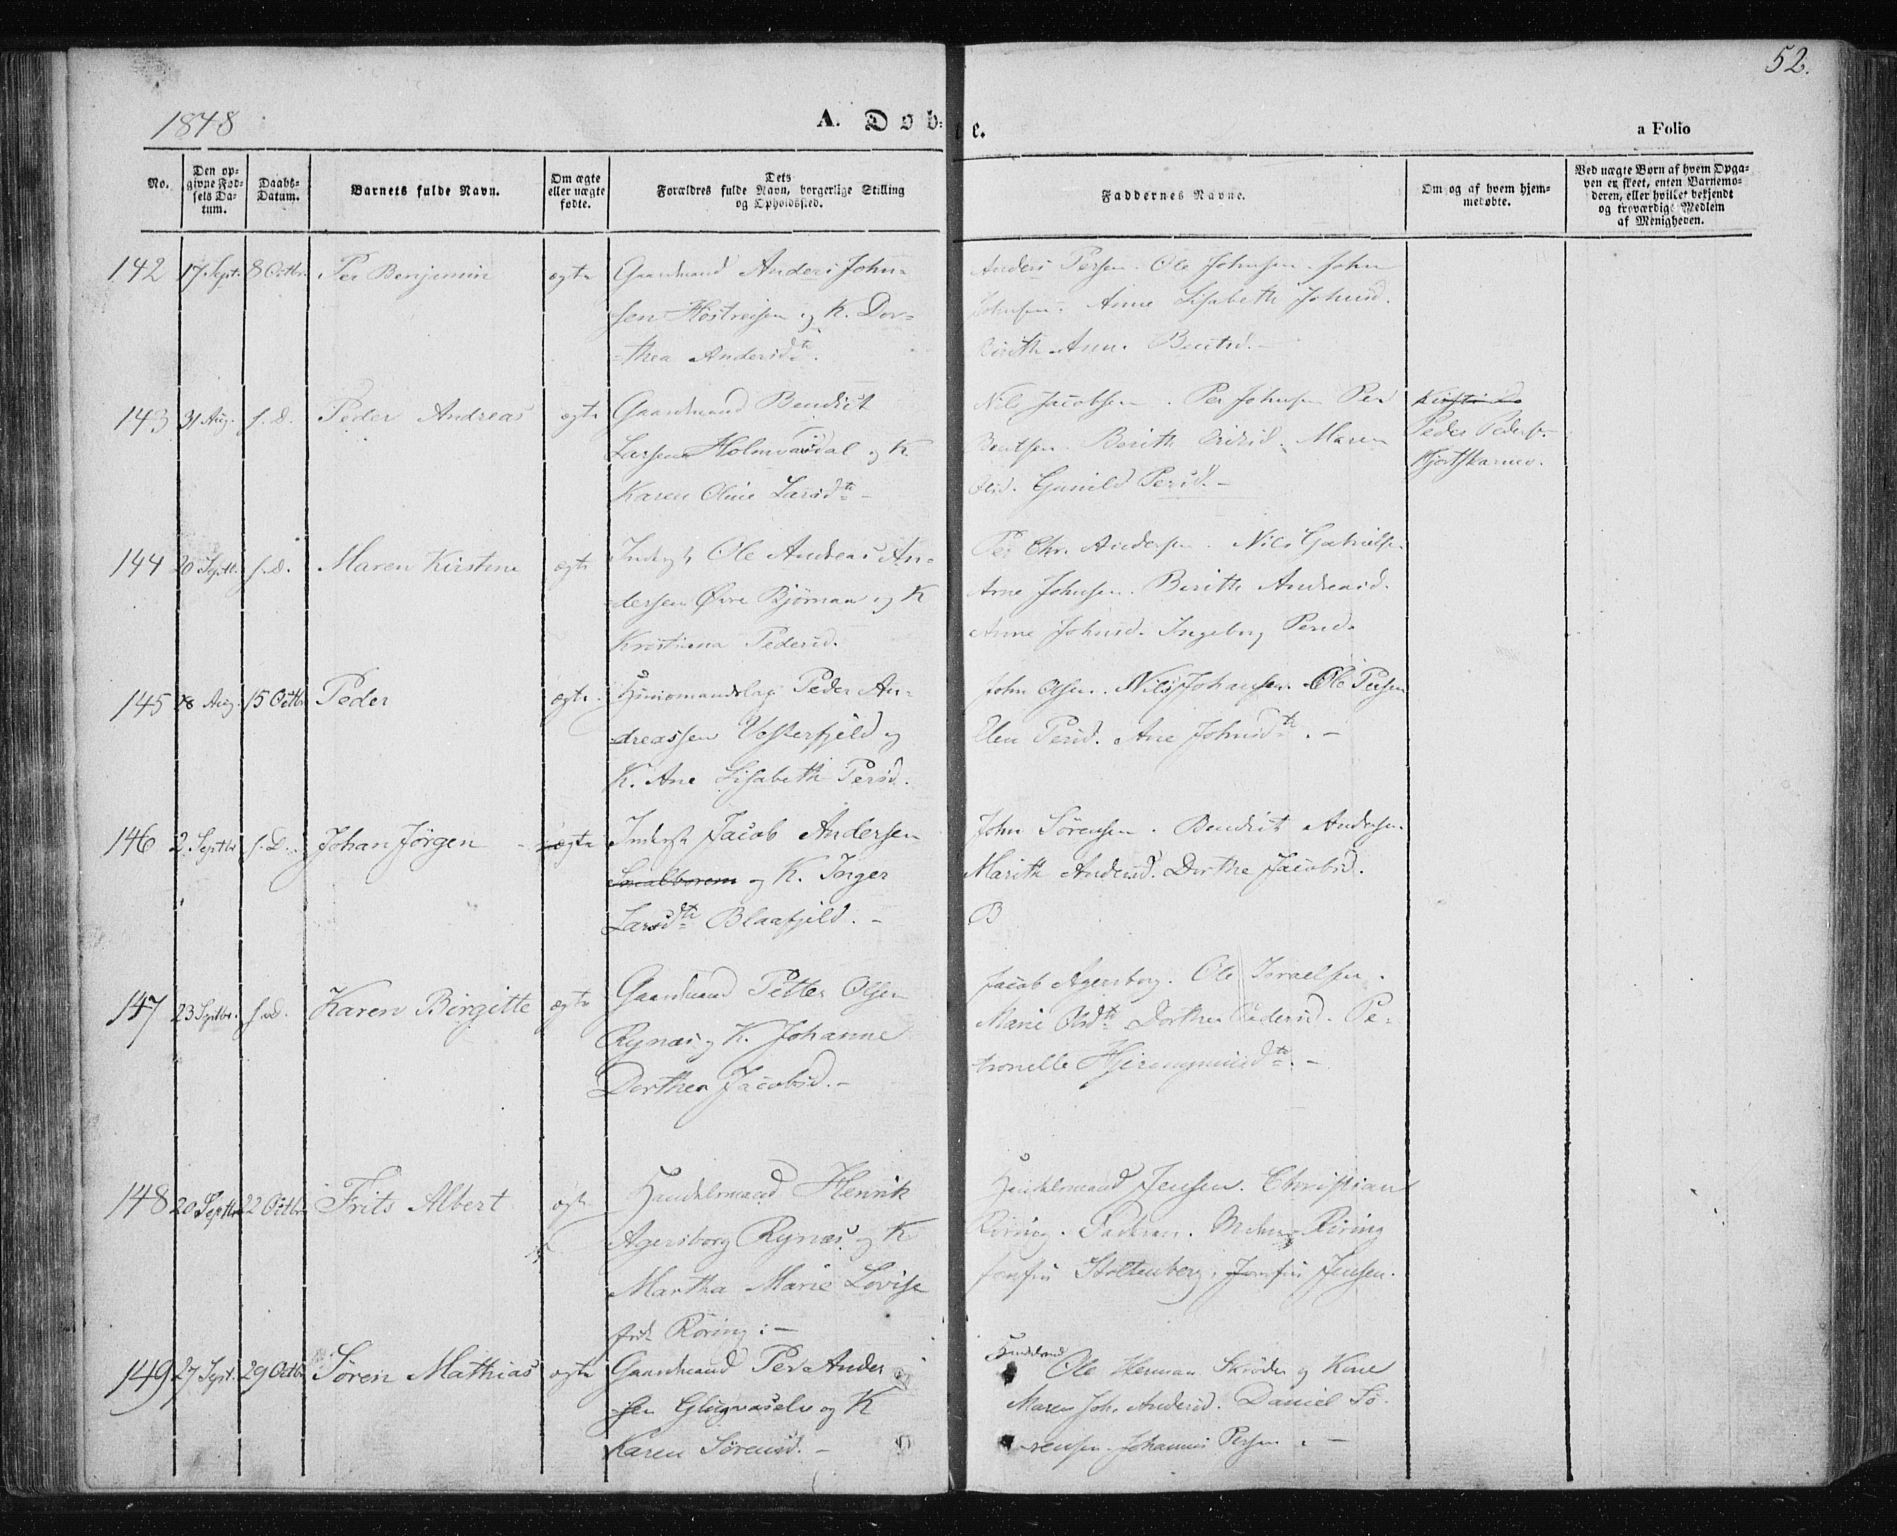 52.
1848
A. Døbte.
a Folio
No.
Den opgivne Fødsels Datum.
Daabs-Datum.
Barnets fulde Navn.
Om ægte eller uægte fødte.
Dets Forældres fulde Navn, borgerlige Stilling og Opholdssted.
Faddernes Navne.
Om og af hvem hjemmedøbte.
Ved uægte Børn af hvem Opgaven er skeet, enten Barnemoderen, eller hvilket bekjendt og troværdigt Medlem af Menigheden.
142 17 Sept. 8 Octbr. Per Benjamin ægte Gaardmand Anders John-
sen Høstreisen og K. Dor-
thea Andersdtr.
Anders Persen. Ole Johnsen. John
Johnsen. Anne Lisabeth Johnsd.
Berith Ann. Bentsd. –
143 31 Aug. s. D. Peder Andreas ægte Gaardmand Bendict
Larsen Holmvasdal og K.
Karen Oline Larsdtr –
Nils Jacobsen. Per Johnsen Per
Bentsen. Berith Maren
Olsd. Gunild Persd. –
Peder Pedersen
144 20 Septb. s. D. Maren Kirstine ægte Inderst Ole Andreas An-
dersen Øvre Bjørnaa og K
Kristiana Pedersd.
Per Chr. Andersen. Nils Gabrielsen
Arne Johnsen. Berith Andreasd.
Anne Johnsd. Ingeborg Persd.
145 18 Aug. 15 Octbr. Peder ægte Huusmandslag Peder An-
dreassen Vesterfjeld og
K. Ane Lisabeth Persd.
John Olsen. Nils Johansen. Ole Persen
Elen Persd. Ane Johnsdtr. –
146 2 Septbr s. D. Johan Jørgen ægte Inderst Jacob Andersen
og K. Inger
Larsdtr Blaafjeld. –
John Sørensen. Bendict Andersen.
Marith Andersd. Dorthe Jacobsd.
B
147 23 Septbr. s. D. Karen Birgitte ægte Gaardmand Petter Olsen
Rynæs og K. Johanne
Dorthea Jacobsd. –
Jacob Agersborg. Ole Israelsen.
Marie Olsdtr. Dorthea Pedersd. Pe-
tronelle Hieronymusdtr. –
148 20 Septbr 22 Octbr. Frits Albert ægte Handelsmand Henrik
Agersborg Rynæs og K
Martha Marie Lovise
født Røring: –
Handelsmand Jensen. Christian
Røring. Faderen. Mdm Røring
Jomfru Stoltenberg. Jomfru Jensen.
149 27 Sept. 29 Octbr. Søren Mathias ægte Gaardmand Per Ander
sen Glugvaselv og K
Karen Sørensd. –
Handelsmd
Ole Herman Skrøder og Kone
Maren Joh. Andersd. Daniel Sø-
rensen. Johannes Persen. –